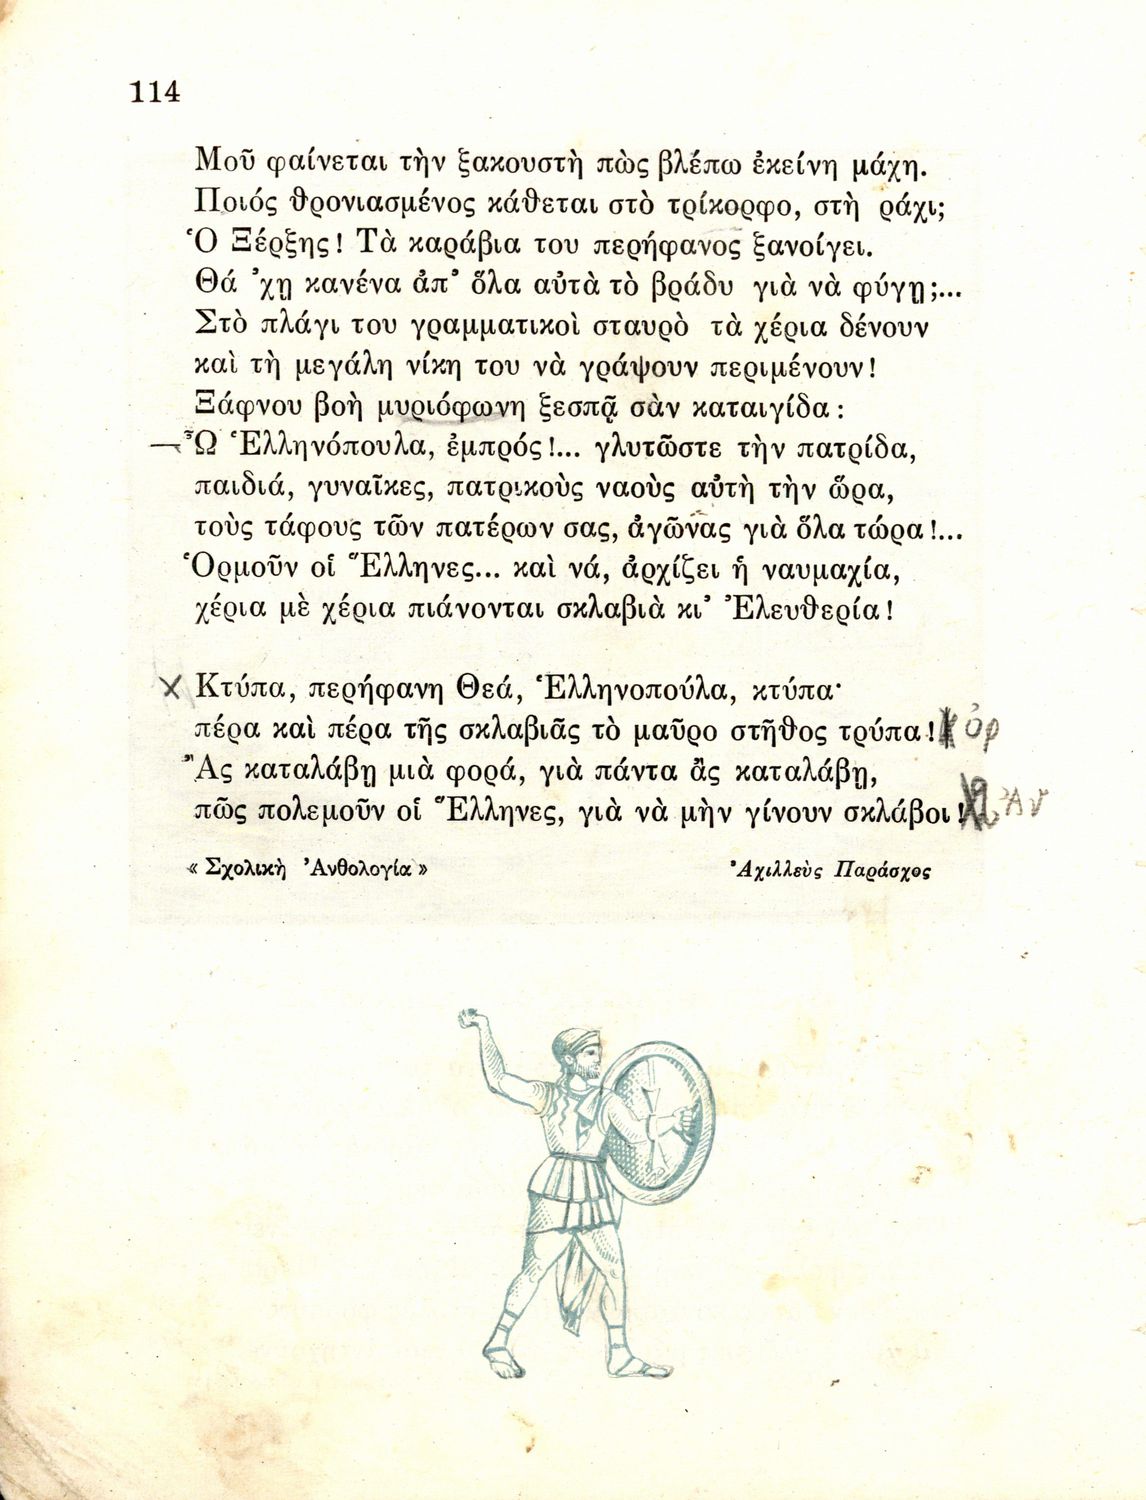 114
Μοῦ φαίνεται τὴν ξακουστὴ πὼς βλέπω ἐκείνη μάχη.
Ποιός θρονιασμένος κάθεται στὸ τρίκορφο, στὴ ράχι;
Ὁ Ξέρξης! Τὰ καράβια του περήφανος ξανοίγει.
Θά ᾿χῃ κανένα ἀπ᾿ ὅλα αὐτὰ τὸ βράδυ γιὰ νὰ φύγῃ;...
Στὸ πλάγι του γραμματικοὶ σταυρὸ τὰ χέρια δένουν
καὶ τὴ μεγάλη νίκη του νὰ γράψουν περιμένουν!
Ξάφνου βοὴ μυριόφωνη ξεσπᾷ σὰν καταιγίδα:
—Ὦ Ἑλληνόπουλα, ἐμπρός!... γλυτῶστε τὴν πατρίδα,
παιδιά, γυναῖκες, πατρικοὺς ναοὺς αὐτὴ τὴν ὥρα,
τοὺς τάφους τῶν πατέρων σας, ἀγῶνας γιὰ ὅλα τώρα!...
Ὁρμοῦν οἱ Ἕλληνες... καὶ νά, ἀρχίζει ἡ ναυμαχία,
χέρια μὲ χέρια πιάνονται σκλαβιὰ κι᾿ Ἐλευθερία!
x Κτύπα, περήφανη Θεά, Ἑλληνοπούλα, κτύπα·
πέρα καὶ πέρα τῆς σκλαβιᾶς τὸ μαῦρο στῆθος τρύπα! ὁρ
Ἂς καταλάβῃ μιὰ φορά, γιὰ πάντα ἂς καταλάβῃ,
πῶς πολεμοῦν οἱ Ἕλληνες, γιὰ νὰ μὴν γίνουν σκλάβοι! Ἀν
«Σχολικὴ Ἀνθολογία» Ἀχιλλεὺς Παράσχος